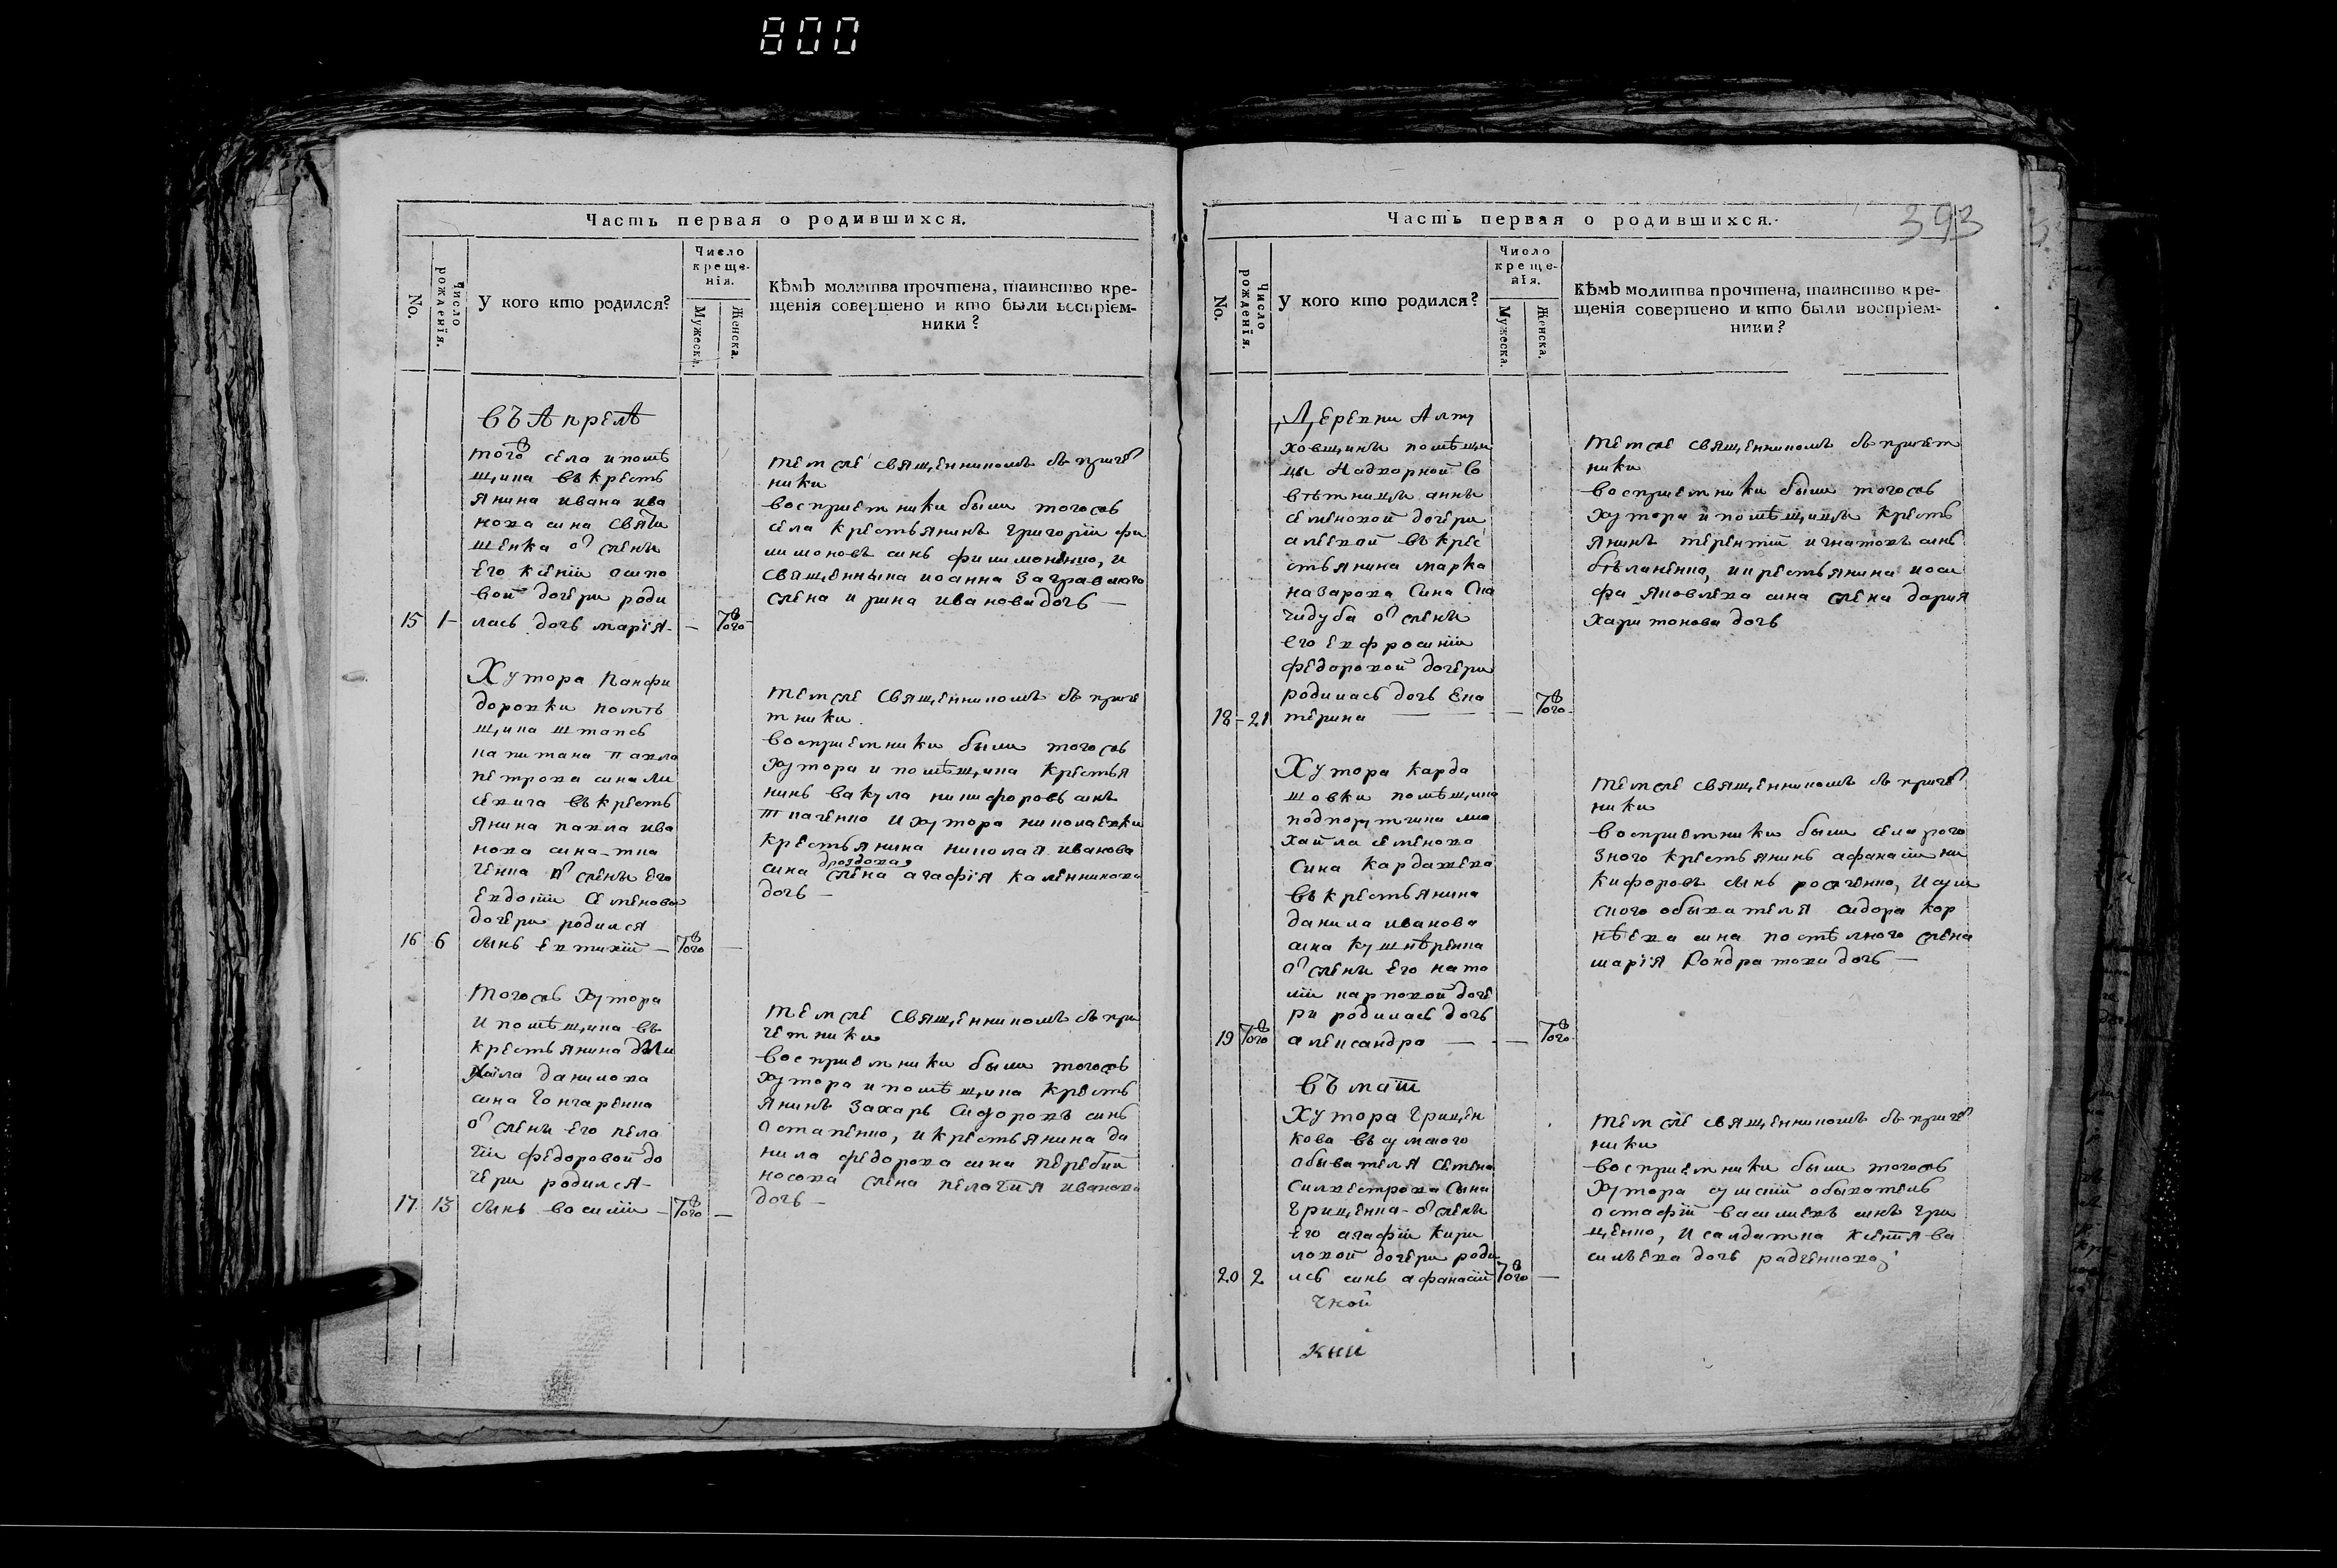 800
Часть первая о родившихся.
No.
Число рожденія.
У кого кто родился?
Число
креще-
нія.
Мужеска.
Женска.
Кѣмъ молитва прочтена, таинство кре-
щенія совершено и кто были воспріем-
ники?
въ Апрелѣ
того села и помѣ
щика въ крестъ
янина ивана ива
нова сина
шенка о жены
его ксеніи
вой дочери роди
15 1 лась дочь марія — того
темже священникомъ съ приче
ники
восприемники были тогожъ
села крестьянинъ григорій фи
лимоновъ синъ филимоненко, и
священника иоанна
жена ирина иванова дочь —
Хутора Панфи
доровки помѣ
щика штапсъ
капитана павла
петрова сина ли
севича въ крестъ
янина павла ива
нова сина тка
ченка о жены его
евдокіи семенова
дочери родился
16 6 сынъ евтихій — того —
темже священникомъ съ приче
тники
восприемники были тогожъ
хутора и помѣщика крестья
нинъ вакула никифоровъ синъ
ткаченко и хутора николаевки
крестьянина николая иванова
сина дроздова жена агафія калениикова
дочь —
тогожъ хутора
и помѣщика въ
крестьянина ми
хаила данилова
сина гончаренка
о жены его пела
гіи федоровой до
чери родился
17 13 сынъ василій — того —
темже священникомъ съ при
четники
восприемники были тогожъ
хутора и помѣщика крестъ
янинъ захаръ сидоровъ синъ
остапенко, и крестьянина да
нила федорова сина перебий
носова жена пелагія иванова
дочь —
Часть первая о родившихся.
393
No.
Число рожденія.
У кого кто родился?
Число
креще-
нія.
Мужеска.
Женска.
Кѣмъ молитва прочтена, таинство кре-
щенія совершено и кто были воспріем-
ники?
Деревни Алту
ховщины помѣщи
цы надворной со
вѣтницы анны
семеновой дочери
въ крес
стьянина марка
назарова сина
о жены
его евфросиніи
федоровой дочери
родилась дочь ека
18 21 терина — — того
темже священникомъ съ причет
ники
восприемники были тогожъ
хутора и помѣщицы крестъ
янинъ терентій игнатовъ синъ
бѣланенко, и крестьянина иоси
фа яковлева сина жена дария
харитонова дочь
Хутора карда
шовки помѣщика
подпорутчика ми
хайла семенова
сина кардашева
въ крестьянина
данила иванова
сина кушнѣренка
о жены его ната
ліи карповой доче
ри родилась дочь
19 того александра — — того
темже священникомъ съ приче
ники
восприемники были села рого
зного крестьянинъ афанасій ни
кифоровъ сынъ и сум
ского обывателя сидора кор
нѣева сина жена
марія кондратова дочь —
въ маѣ
Хутора грищен
кова въ сумского
обывателя семена
силвестрова сына
грищенка о жены
его агафіи кири
ловой дочери роди
20 2 лсь синъ афанасій того —
темже священникомъ съ приче
ники
восприемники были тогожъ
хутора сумскій обыватель
остафій василиевъ синъ гри
щенко, и салдатка ксенія ва
силѣева дочь радченкова
чкой
кий